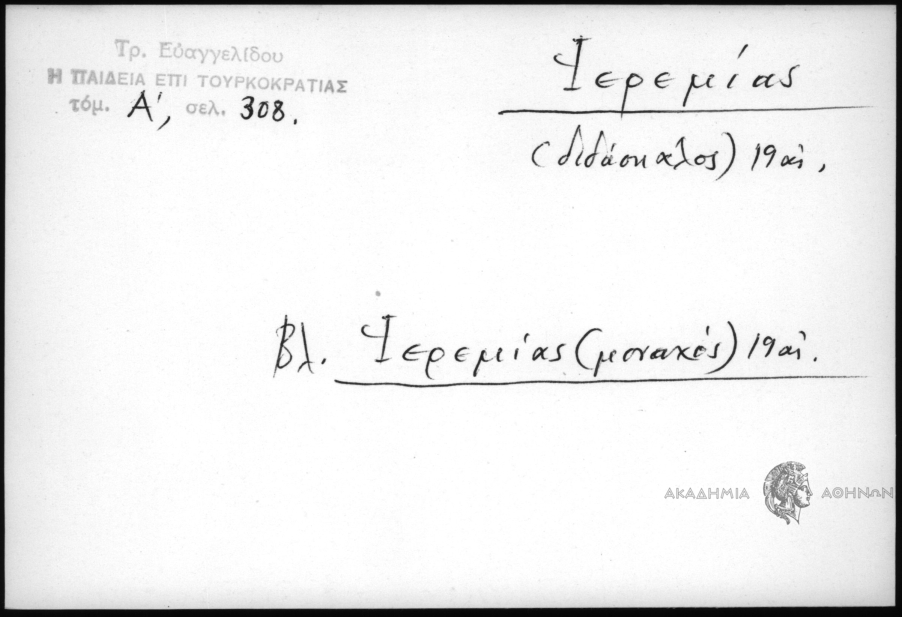 Τρ. Εὐαγγελίδου
Η ΠΑΙΔΕΙΑ ΕΠΙ ΤΟΥΡΚΟΚΡΑΤΙΑΣ
τόμ. Α΄, σελ. 308.
Ἰερεμίας
(διδάσκαλος) 19 αἰ.
Βλ. Ἰερεμίας (μοναχός) 19 αἰ.
ΑΚΑΔΗΜΙΑ ΑΘΗΝΩΝ